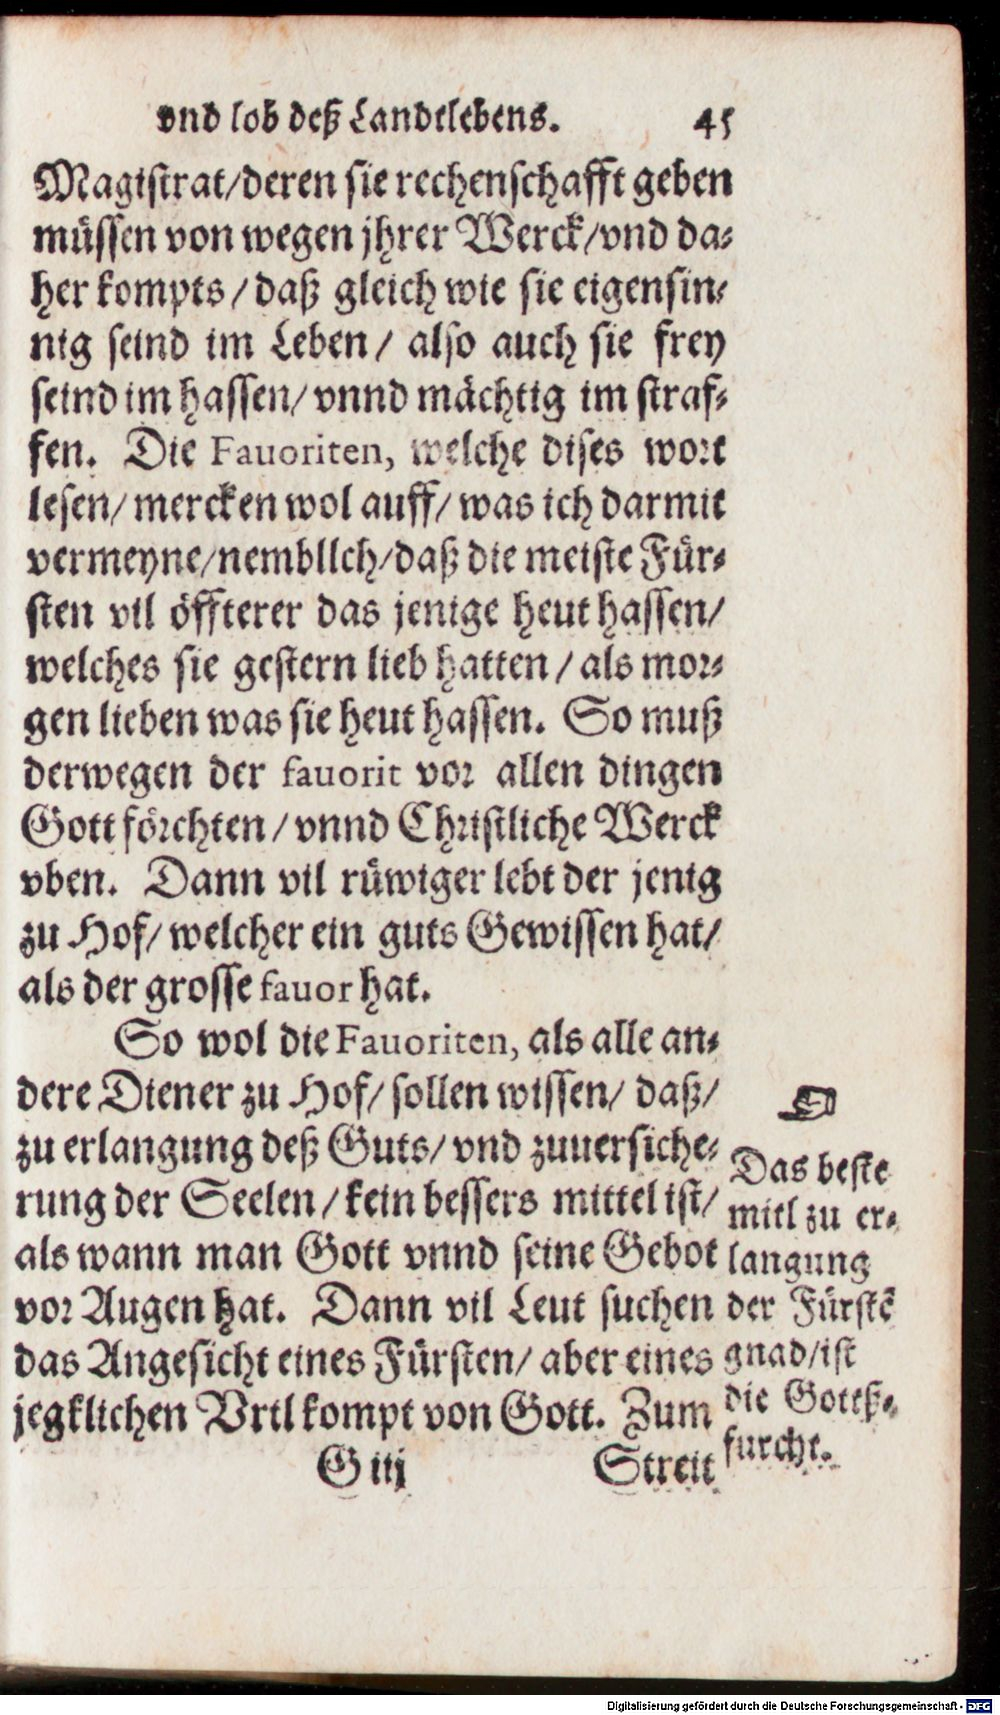 vnd lob deß Landtlebens. 45
Magistrat/deren sie rechenschafft geben
müssen von wegen jhrer Werck/vnd da-
her kompts/daß gleich wie sie eigensin-
nig seind im Leben/ also auch sie frey
seind im hassen/ vnnd mächtig im straf-
fen. Die Fauoriten, welche dises wort
lesen/ mercken wol auff/ was ich darmit
vermeyne/nembllch/daß die meiste Für-
sten vil öffterer das jenige heut hassen/
welches sie gestern lieb hatten/als mor-
gen lieben was sie heut hassen. So muß
derwegen der fauorit vor allen dingen
Gott förchten/vnnd Christliche Werck
vben. Dann vil rüwiger lebt der jenig
zu Hof/ welcher ein guts Gewissen hat/
als der grosse fauor hat.
So wol die Fauoriten, als alle an-
dere Diener zu Hof/ sollen wissen/ daß/
zu erlangung deß Guts/ vnd zuuersiche-
rung der Seelen/kein bessers mittel ist/
als wann man Gott vnnd seine Gebot
vor Augen hat. Dann vil Leut suchen
das Angesicht eines Fürsten/ aber eines
jegklichen Vrtl kompt von Gott. Zum
G iij Streit
☞
Das beste
mitl zu er-
langung
der Fürstē
gnad/ist
die Gottß-
furcht.
Digitalisierung gefördert durch die Deutsche Forschungsgemeinschaft - DFG